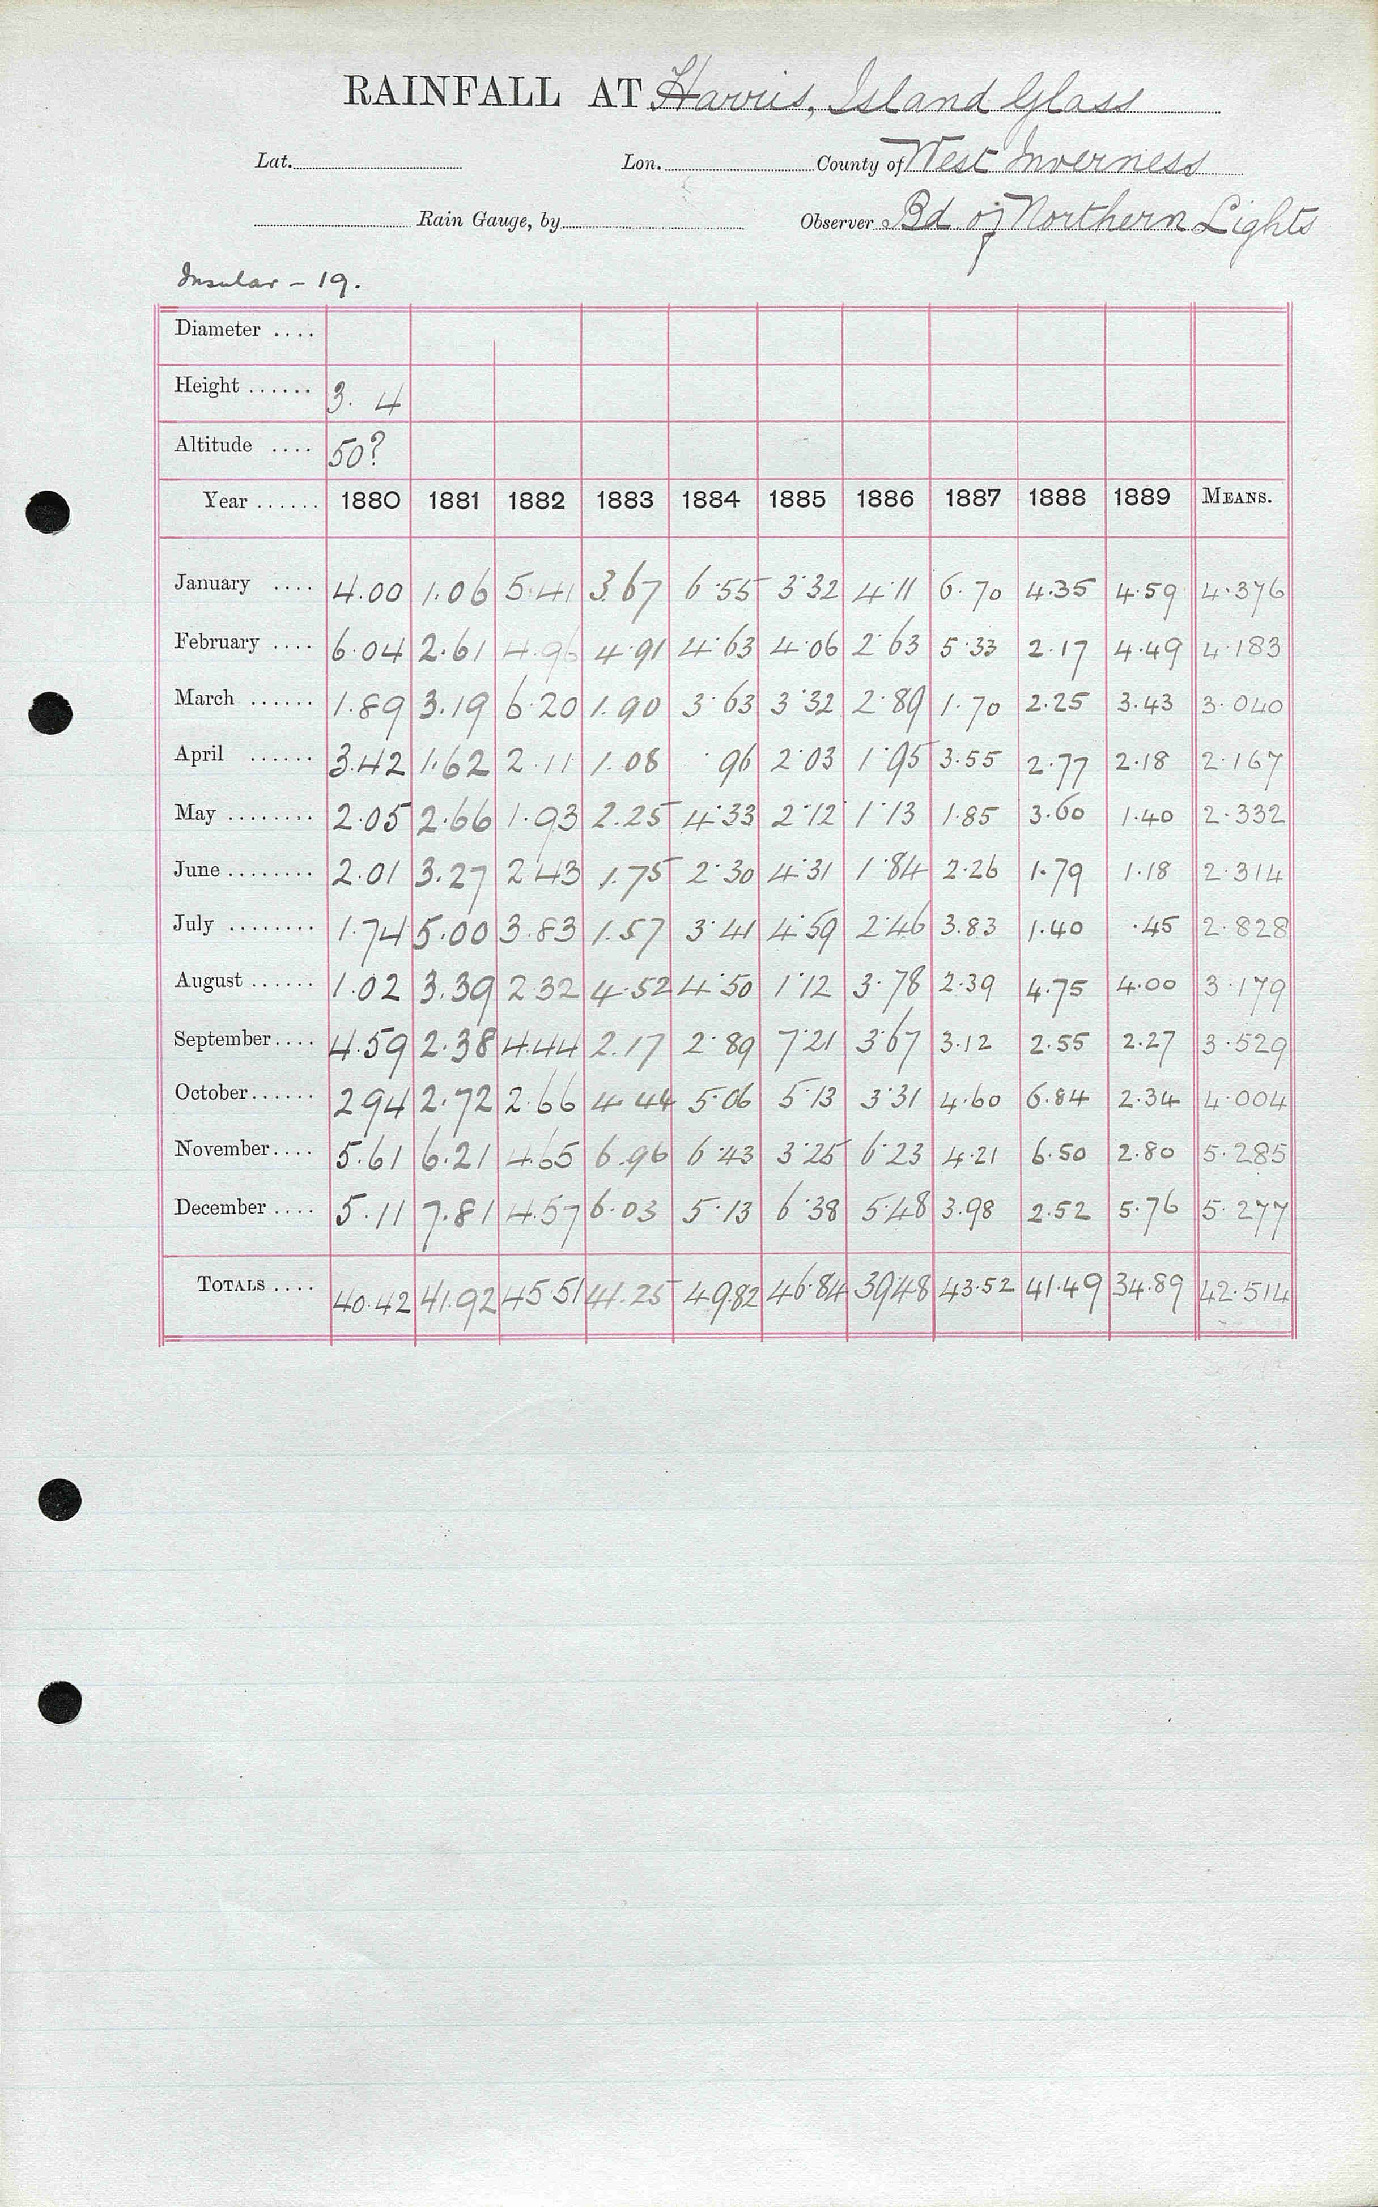 RAINFALL AT Harris, Island Glass
Lat. Lon. County of West Inverness
Rain Gauge, by Observer Bd of Northern Lights
Insular - 19.
Diameter ....
Height ...... 3. 4
Altitude .... 50?
Year ...... 1880 1881 1882 1883 1884 1885 1886 1887 1888 1889 MEANS.
January .... 4.00 1.06 5.41 3.67 6.55 3.32 4.11 6.70 4.35 4.59 4.376
February .... 6.04 2.61 4.96 4.91 4.63 4.06 2.63 5.33 2.17 4.49 4.183
March ...... 1.89 3.19 6.20 1.90 3.63 3.32 2.89 1.70 2.25 3.43 3.040
April ...... 3.42 1.62 2.11 1.08 .96 2.03 1.95 3.55 2.77 2.18 2.167
May ........ 2.05 2.66 1.93 2.25 4.33 2.12 1.13 1.85 3.60 1.40 2.332
June ........ 2.01 3.27 2.43 1.75 2.30 4.31 1.84 2.26 1.79 1.18 2.314
July ........ 1.74 5.00 3.83 1.57 3.41 4.59 2.46 3.83 1.40 .45 2.828
August ...... 1.02 3.39 2.32 4.52 4.50 1.12 3.78 2.39 4.75 4.00 3.179
September .... 4.59 2.38 4.44 2.17 2.89 7.21 3.67 3.12 2.55 2.27 3.529
October ...... 2.94 2.72 2.66 4.44 5.06 5.13 3.31 4.60 6.84 2.34 4.004
November .... 5.61 6.21 4.65 6.96 6.43 3.25 6.23 4.21 6.50 2.80 5.285
December .... 5.11 7.81 4.57 6.03 5.13 6.38 5.48 3.98 2.52 5.76 5.277
TOTALS .... 40.42 41.92 45.51 41.25 49.82 46.84 39.48 43.52 41.49 34.89 42.514